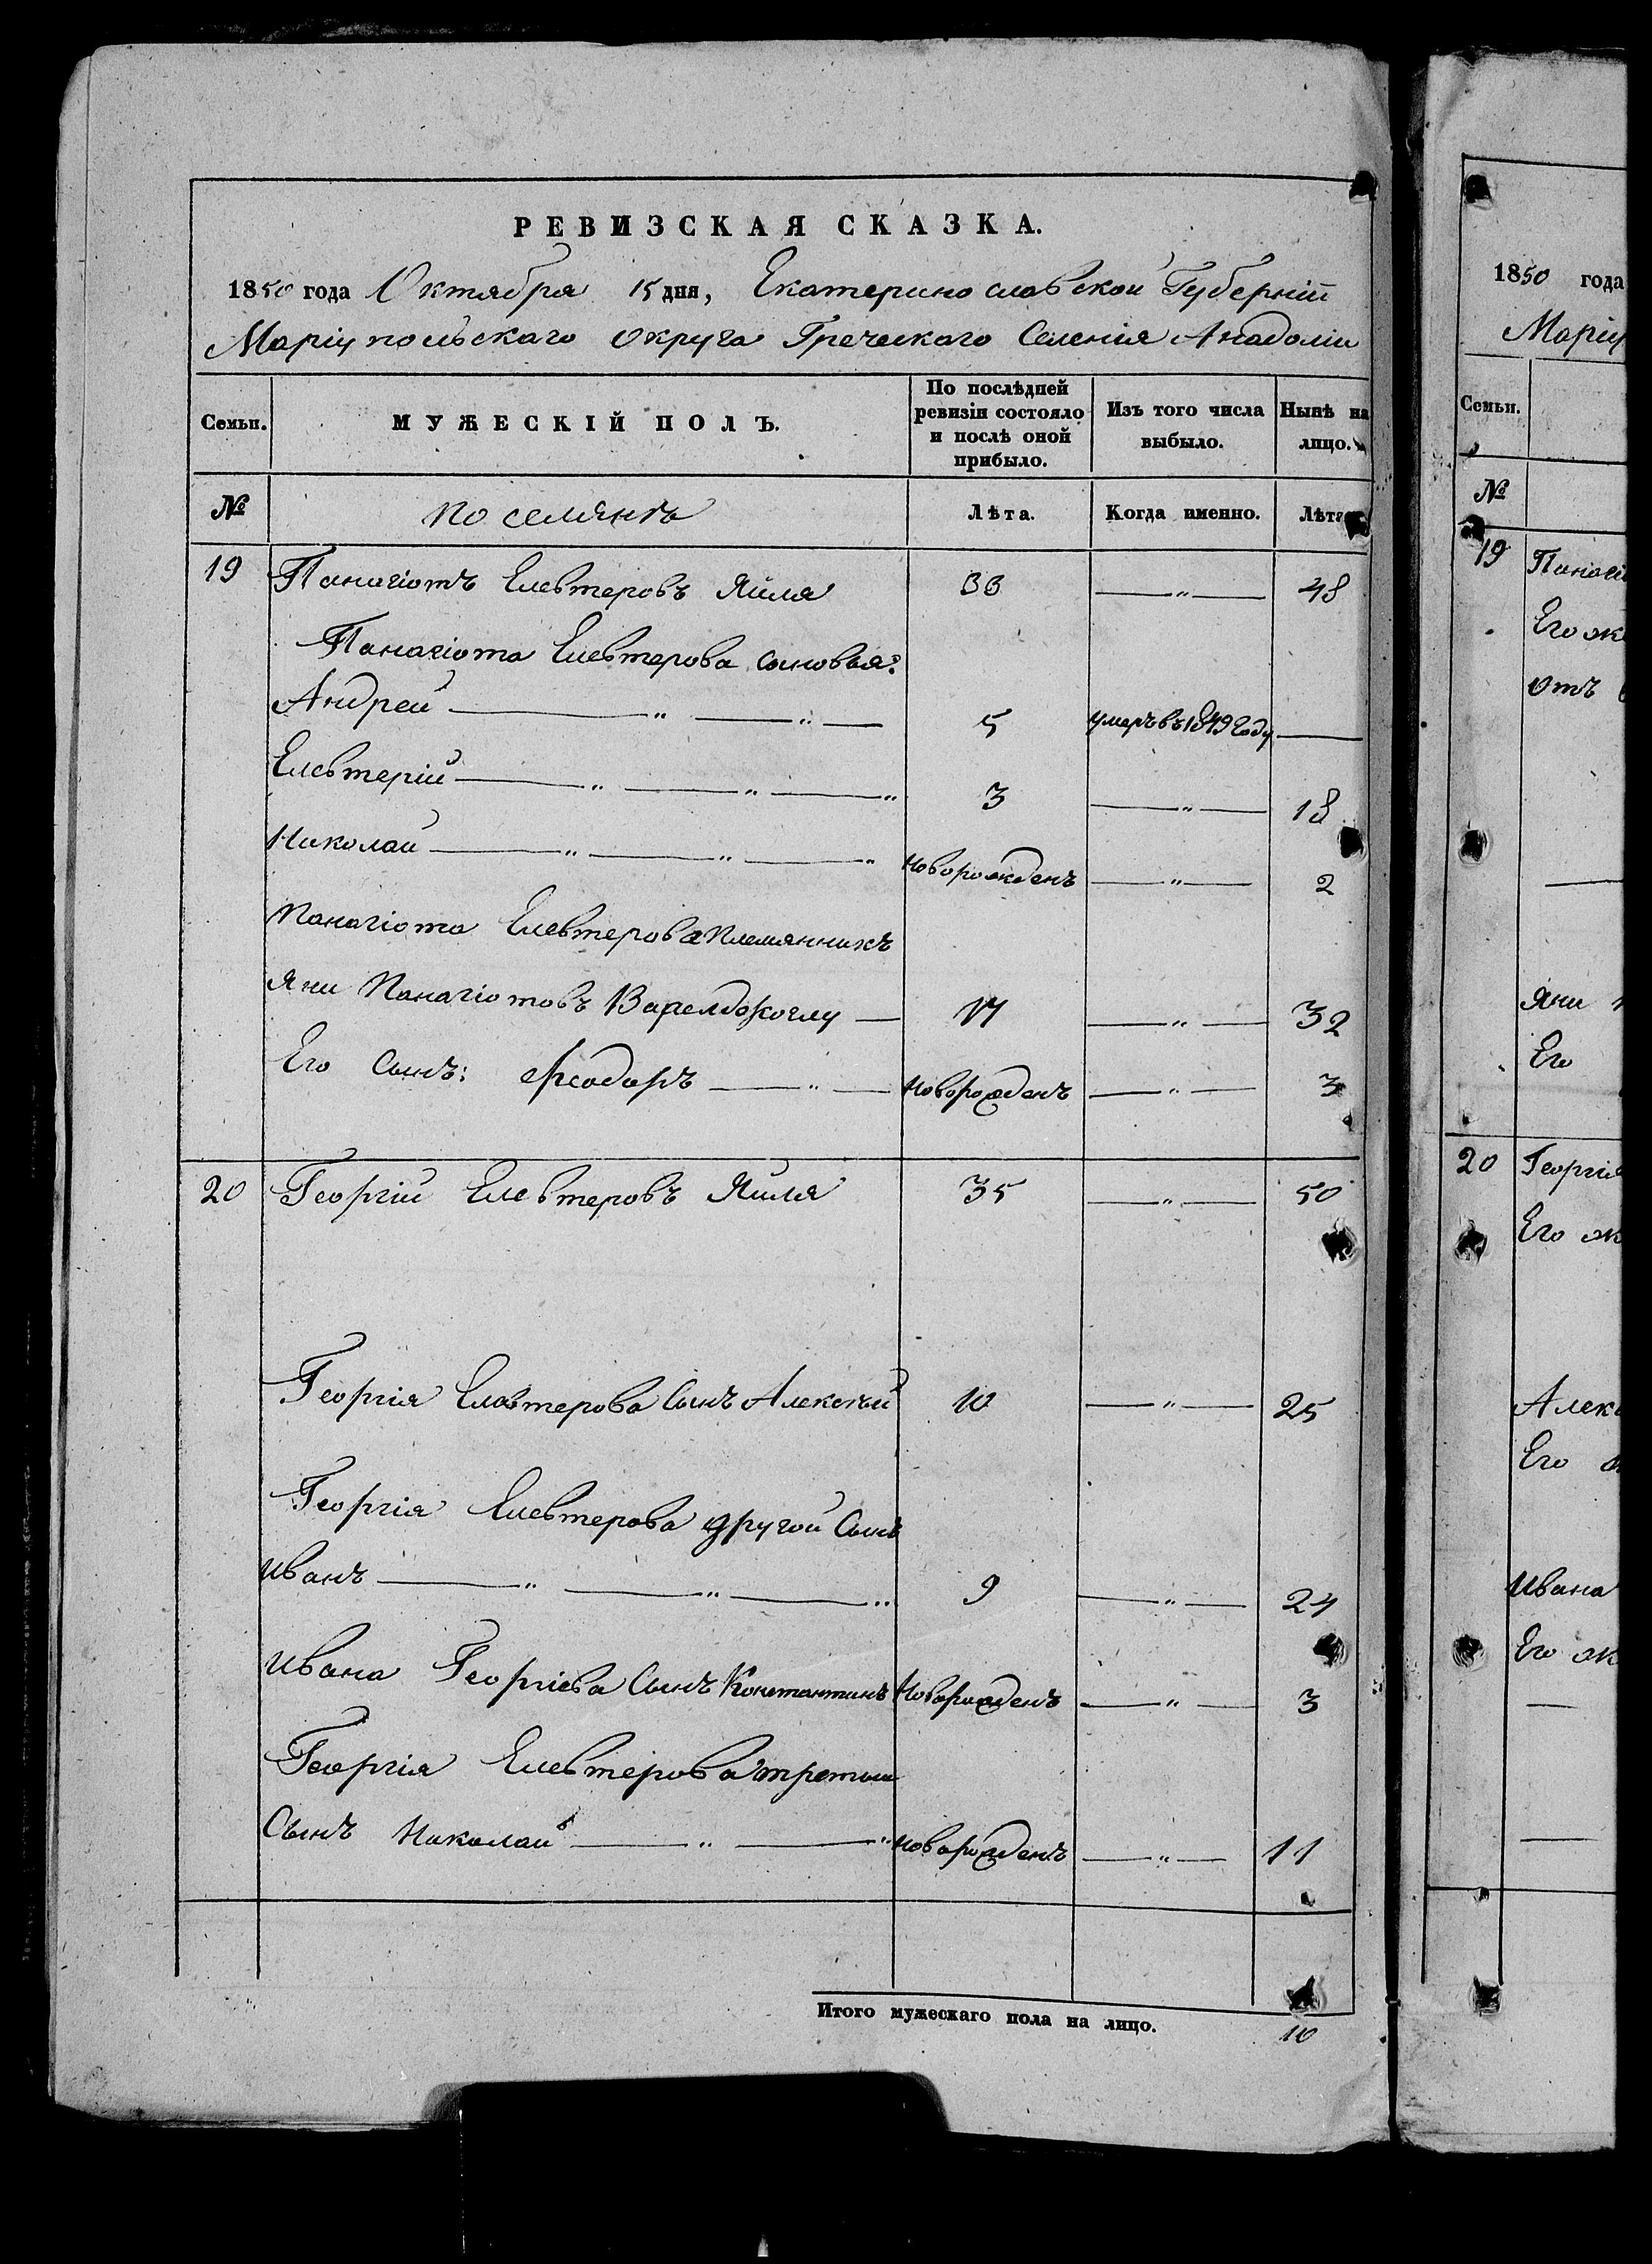 РЕВИЗСКАЯ СКАЗКА.
1850 года Октября 15 дня, Екатеринославской Губерніи
Маріупольскаго Округа Греческаго Селенія Анадоліи
Семьи. МУЖЕСКІЙ ПОЛЪ. По послѣдней ревизіи состояло и послѣ оной прибыло. Изъ того числа выбыло. Нынѣ на лицо.
№ Поселянъ Лѣта. Когда именно. Лѣта
19 Панагіотъ Елевтеровъ Яйля 33 —„— 48
Панагіота Елевтерова сыновья:
Андрей —„—„— 5 умеръ въ 1849 году —
Елевтерій —„—„—„ 3 —„— 18
Николай —„—„—„ новорожденъ —„— 2
Панагіота Елевтерова Племянникъ
Яни Панагіотовъ — 17 —„— 32
Его Сынъ: Феодоръ —„— новорожденъ —„— 3
20 Георгій Елевтеровъ Яйля 35 —„— 50
Георгія Елевтерова Сынъ Алексѣй 10 —„— 25
Георгія Елевтерова другой Сынъ
Иванъ —„—„—„ 9 —„— 24
Ивана Георгіева Сынъ Константинъ Новорожденъ —„— 3
Георгія Елевтерова третьій
Сынъ Николай —„—„ новорожденъ —„— 11
Итого мужескаго пола на лицо. 10
1850 года
Маріу
Семьи.
№
19 Панагі
Его ж
Отъ
Яни
Его
20 Георгія
Его ж
Алекс
Его
Ивана
Его ж